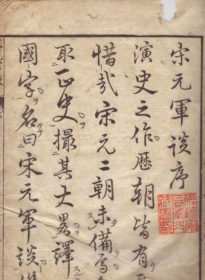 宋元軍談序
演史之作歴朝皆有
惜哉宋元二朝未備焉
取正史撮其大畧譯
國字名曰宋元軍談